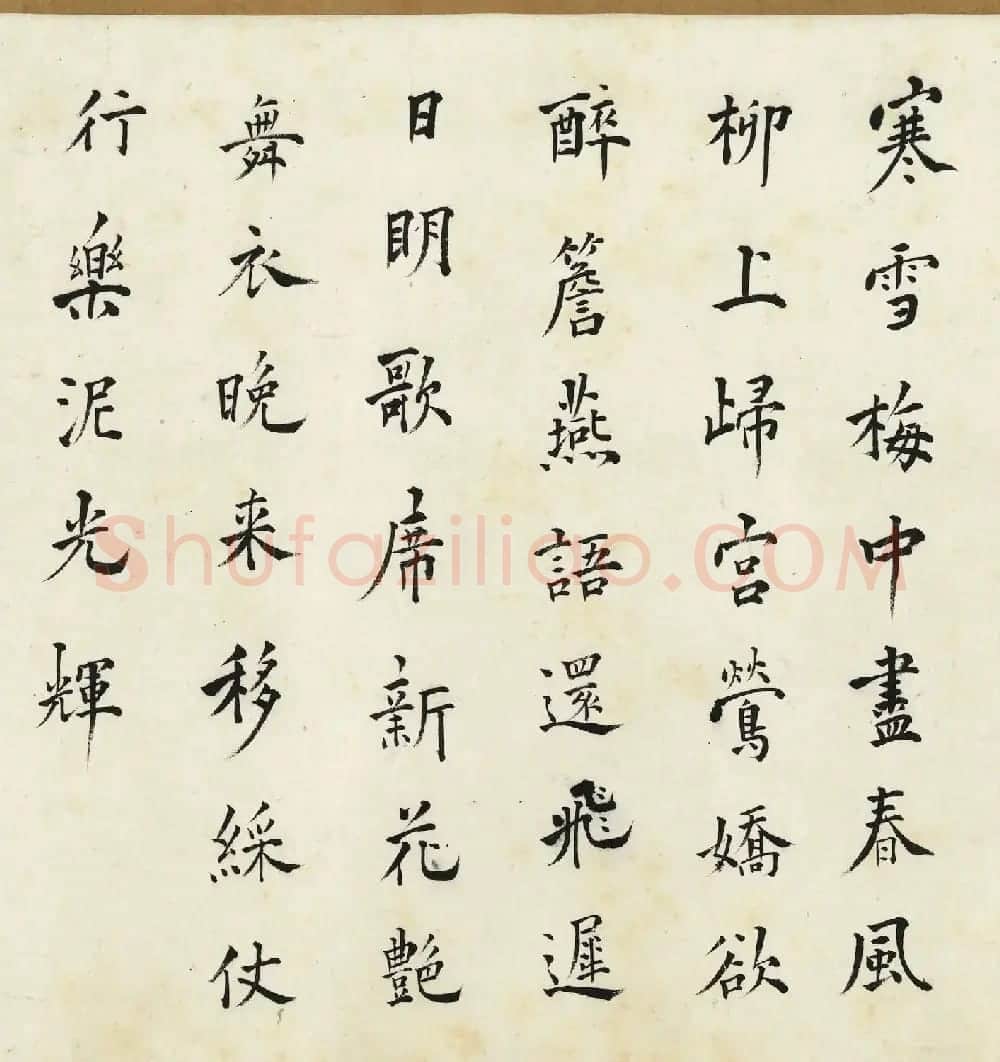 寒雪梅中盡春風
柳上歸宮鶯嬌欲
醉簷燕語還飛遲
日明歌席新花艷
舞衣晚来移綵仗
行樂泥光輝
Shufaziliao.COM